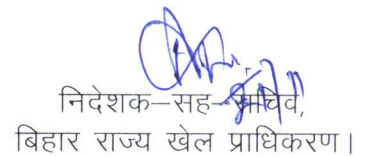 निदेशक–सह–सचिव,
बिहार राज्य खेल प्राधिकरण।